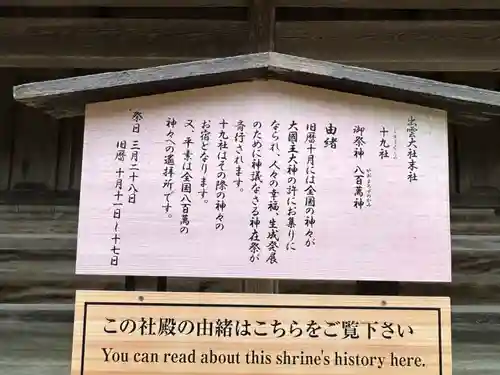 出雲大社末社
十九社
じゅうくしゃ
御祭神 八百萬神
やおよろずのかみ
由緒
旧暦十月には全国の神々が
大國主大神の許にお集りに
なられ、人々の幸福、生成発展
のために神議なさる神在祭が
斎行されます。
十九社はその際の神々の
お宿となります。
又、平素は全国八百萬の
神々への遥拝所です。
祭日 三月二十八日
旧暦 十月十一日～十七日
この社殿の由緒はこちらをご覧下さい
You can read about this shrine's history here.